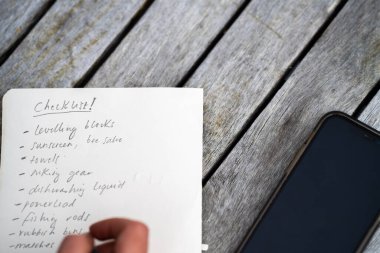 Checklist!
- levelling blocks
- sunscreen,
- towels
- hiking gear
- dishwashing liquid
- powerlead
- fishing rods
- rubbish bins
- matches